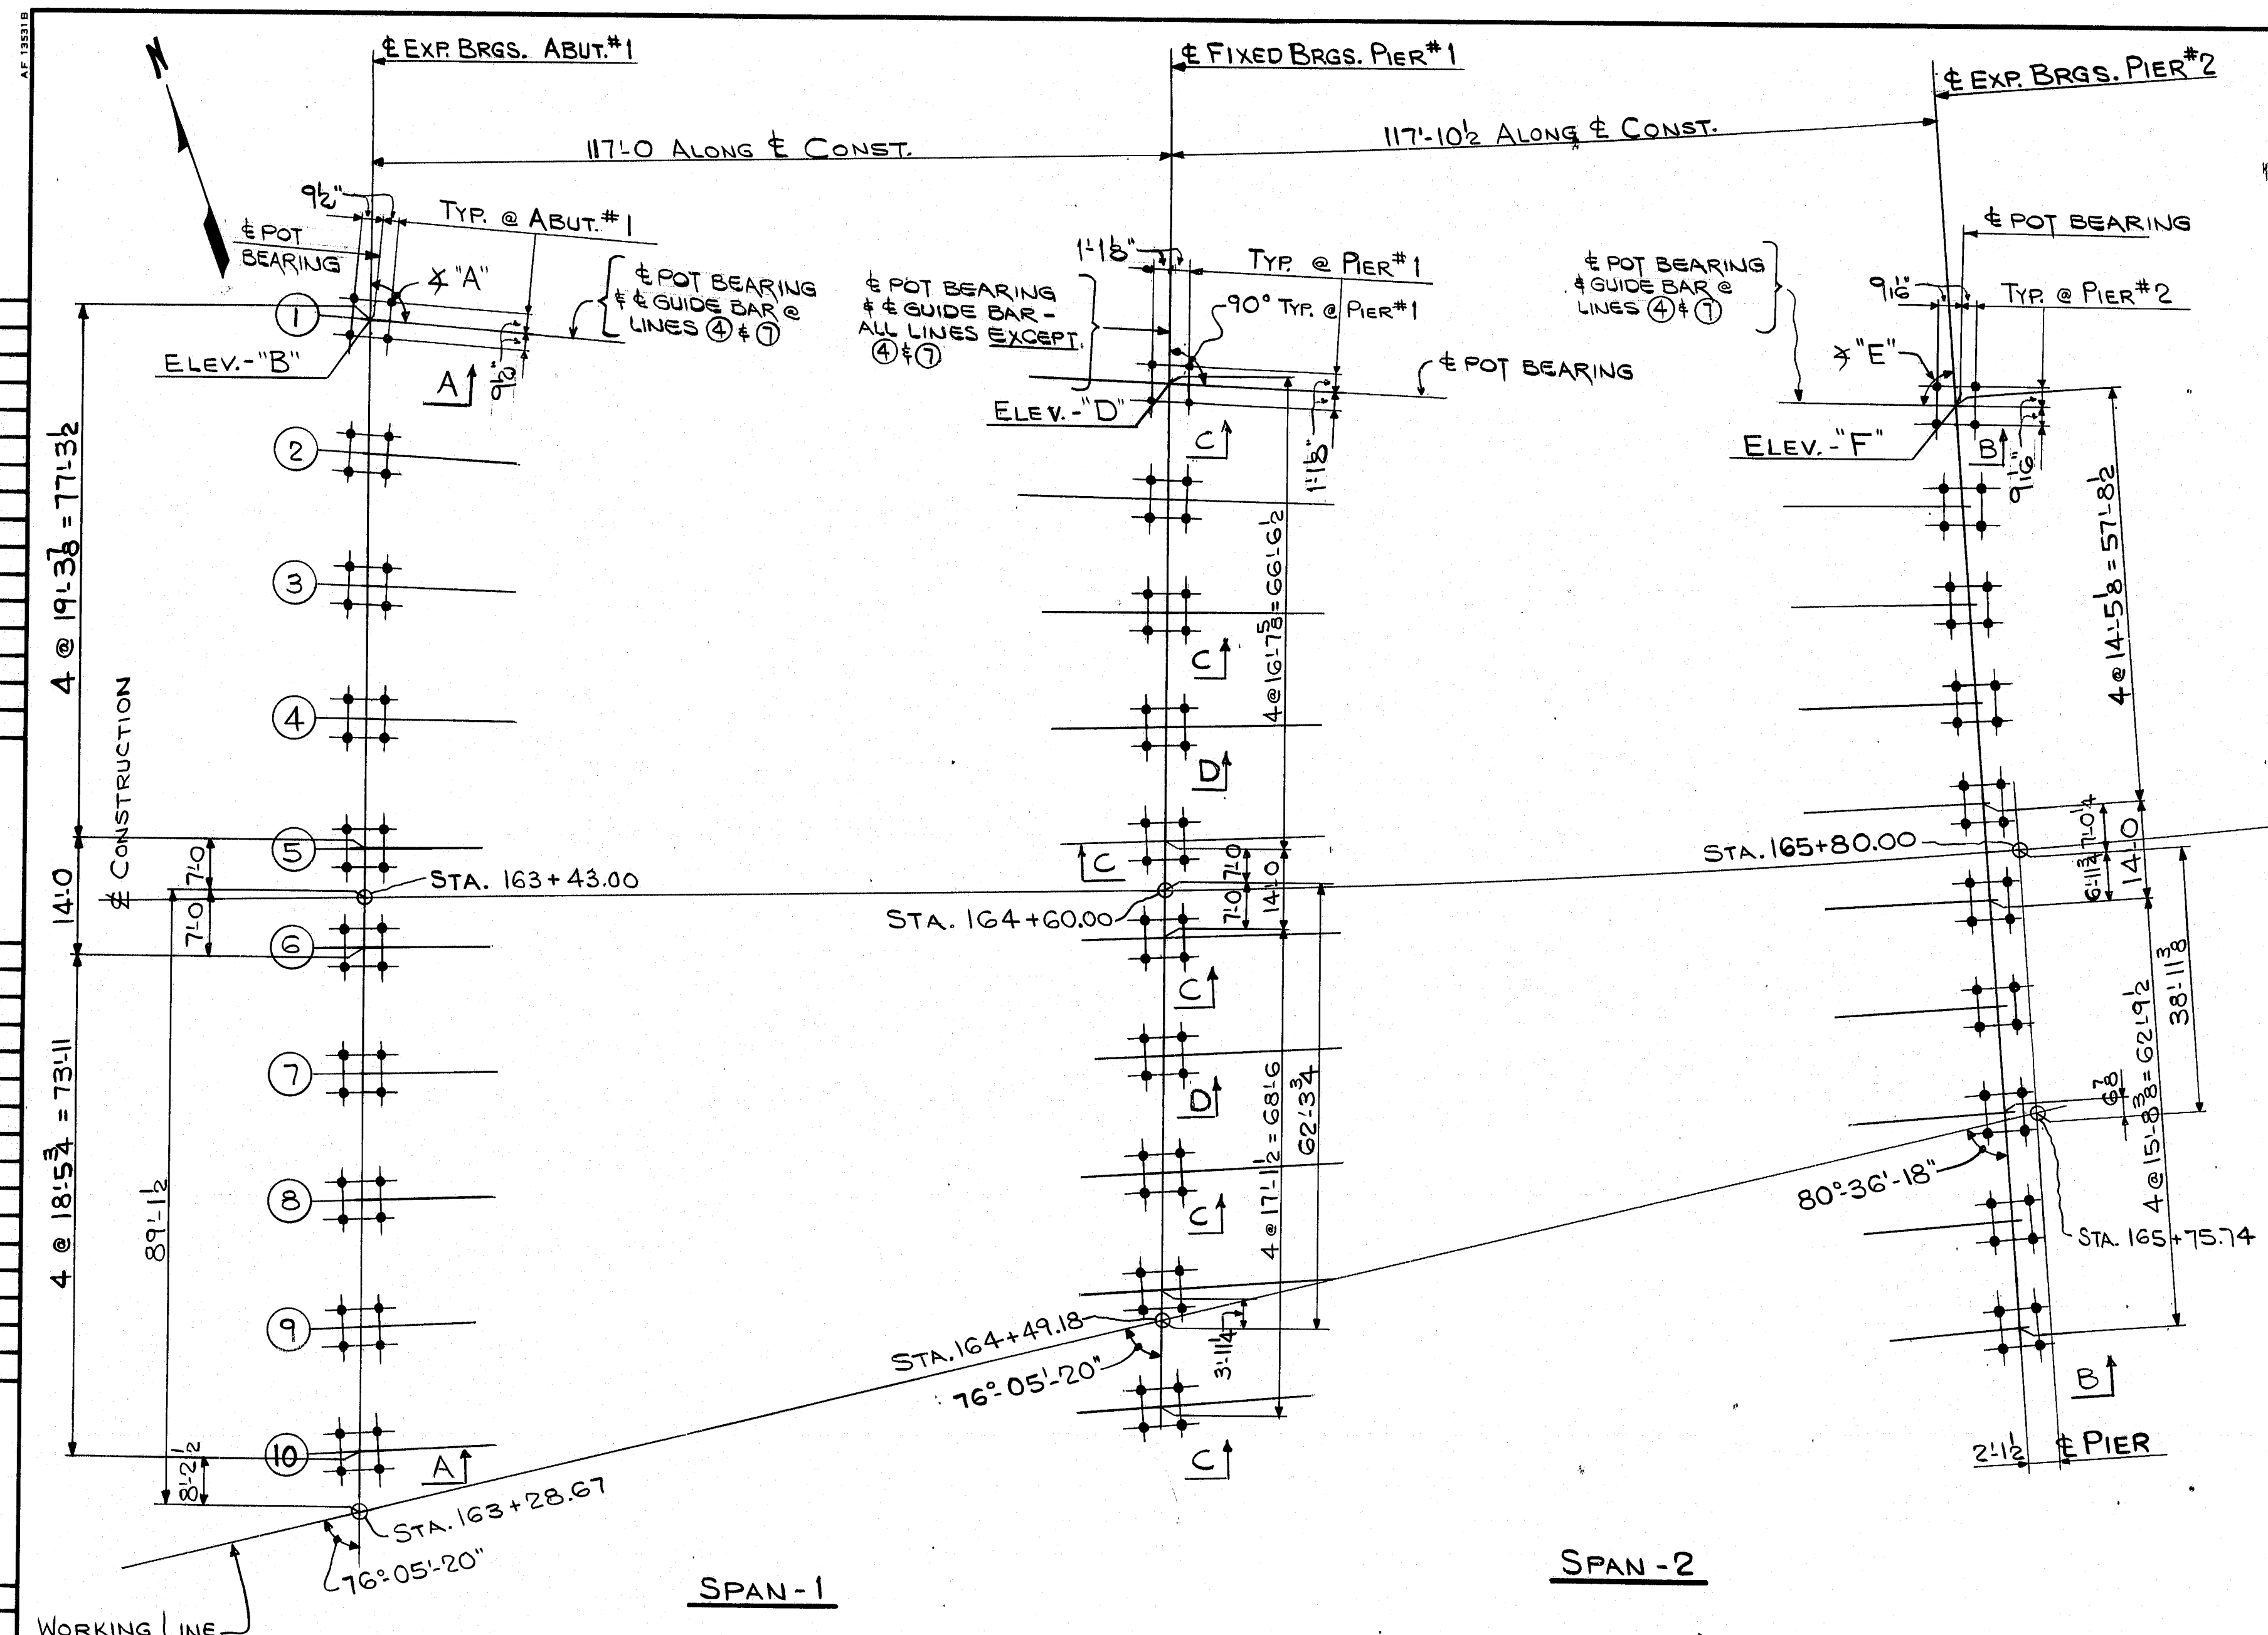 AF 13531B
N
℄ EXP. BRGS. ABUT. #1
℄ FIXED BRGS. PIER #1
℄ EXP. BRGS. PIER #2
117'-0 ALONG ℄ CONST.
117'-10½ ALONG ℄ CONST.
9½"
TYP. @ ABUT. #1
℄ POT
BEARING
∡ "A"
℄ POT BEARING
& ℄ GUIDE BAR @
LINES ④ & ⑦
①
ELEV.-"B"
A
9½"
℄ POT BEARING
& ℄ GUIDE BAR -
ALL LINES EXCEPT
④ & ⑦
1'-1⅛"
TYP. @ PIER #1
90° TYP. @ PIER #1
℄ POT BEARING
ELEV.-"D"
C
1'-1⅛"
℄ POT BEARING
& GUIDE BAR @
LINES ④ & ⑦
℄ POT BEARING
9 1/16"
TYP. @ PIER #2
∡ "E"
ELEV.-"F"
B
9 1/16"
②
③
④
⑤
⑥
⑦
⑧
⑨
⑩
4 @ 19'-3⅞ = 77'-3½
14'-0
4 @ 18'-5¾ = 73'-11
℄ CONSTRUCTION
7'-0
7'-0
89'-1½
8'-2½
STA. 163+43.00
A
STA. 163+28.67
76°-05'-20"
WORKING LINE
SPAN-1
C
D
C
C
D
C
C
4 @ 16'-7⅝ = 66'-6½
7'-0
7'-0
14'-0
STA. 164+60.00
4 @ 17'-1½ = 68'-6
62'-3¾
STA. 164+49.18
76°-05'-20"
3'-11¼
SPAN-2
4 @ 14'-5⅛ = 57'-8½
STA. 165+80.00
7'-0¼
6'-11¾
14'-0
38'-11⅜
6⅞
4 @ 15'-8⅜ = 62'-9½
80°-36'-18"
STA. 165+75.74
B
2'-1½
℄ PIER